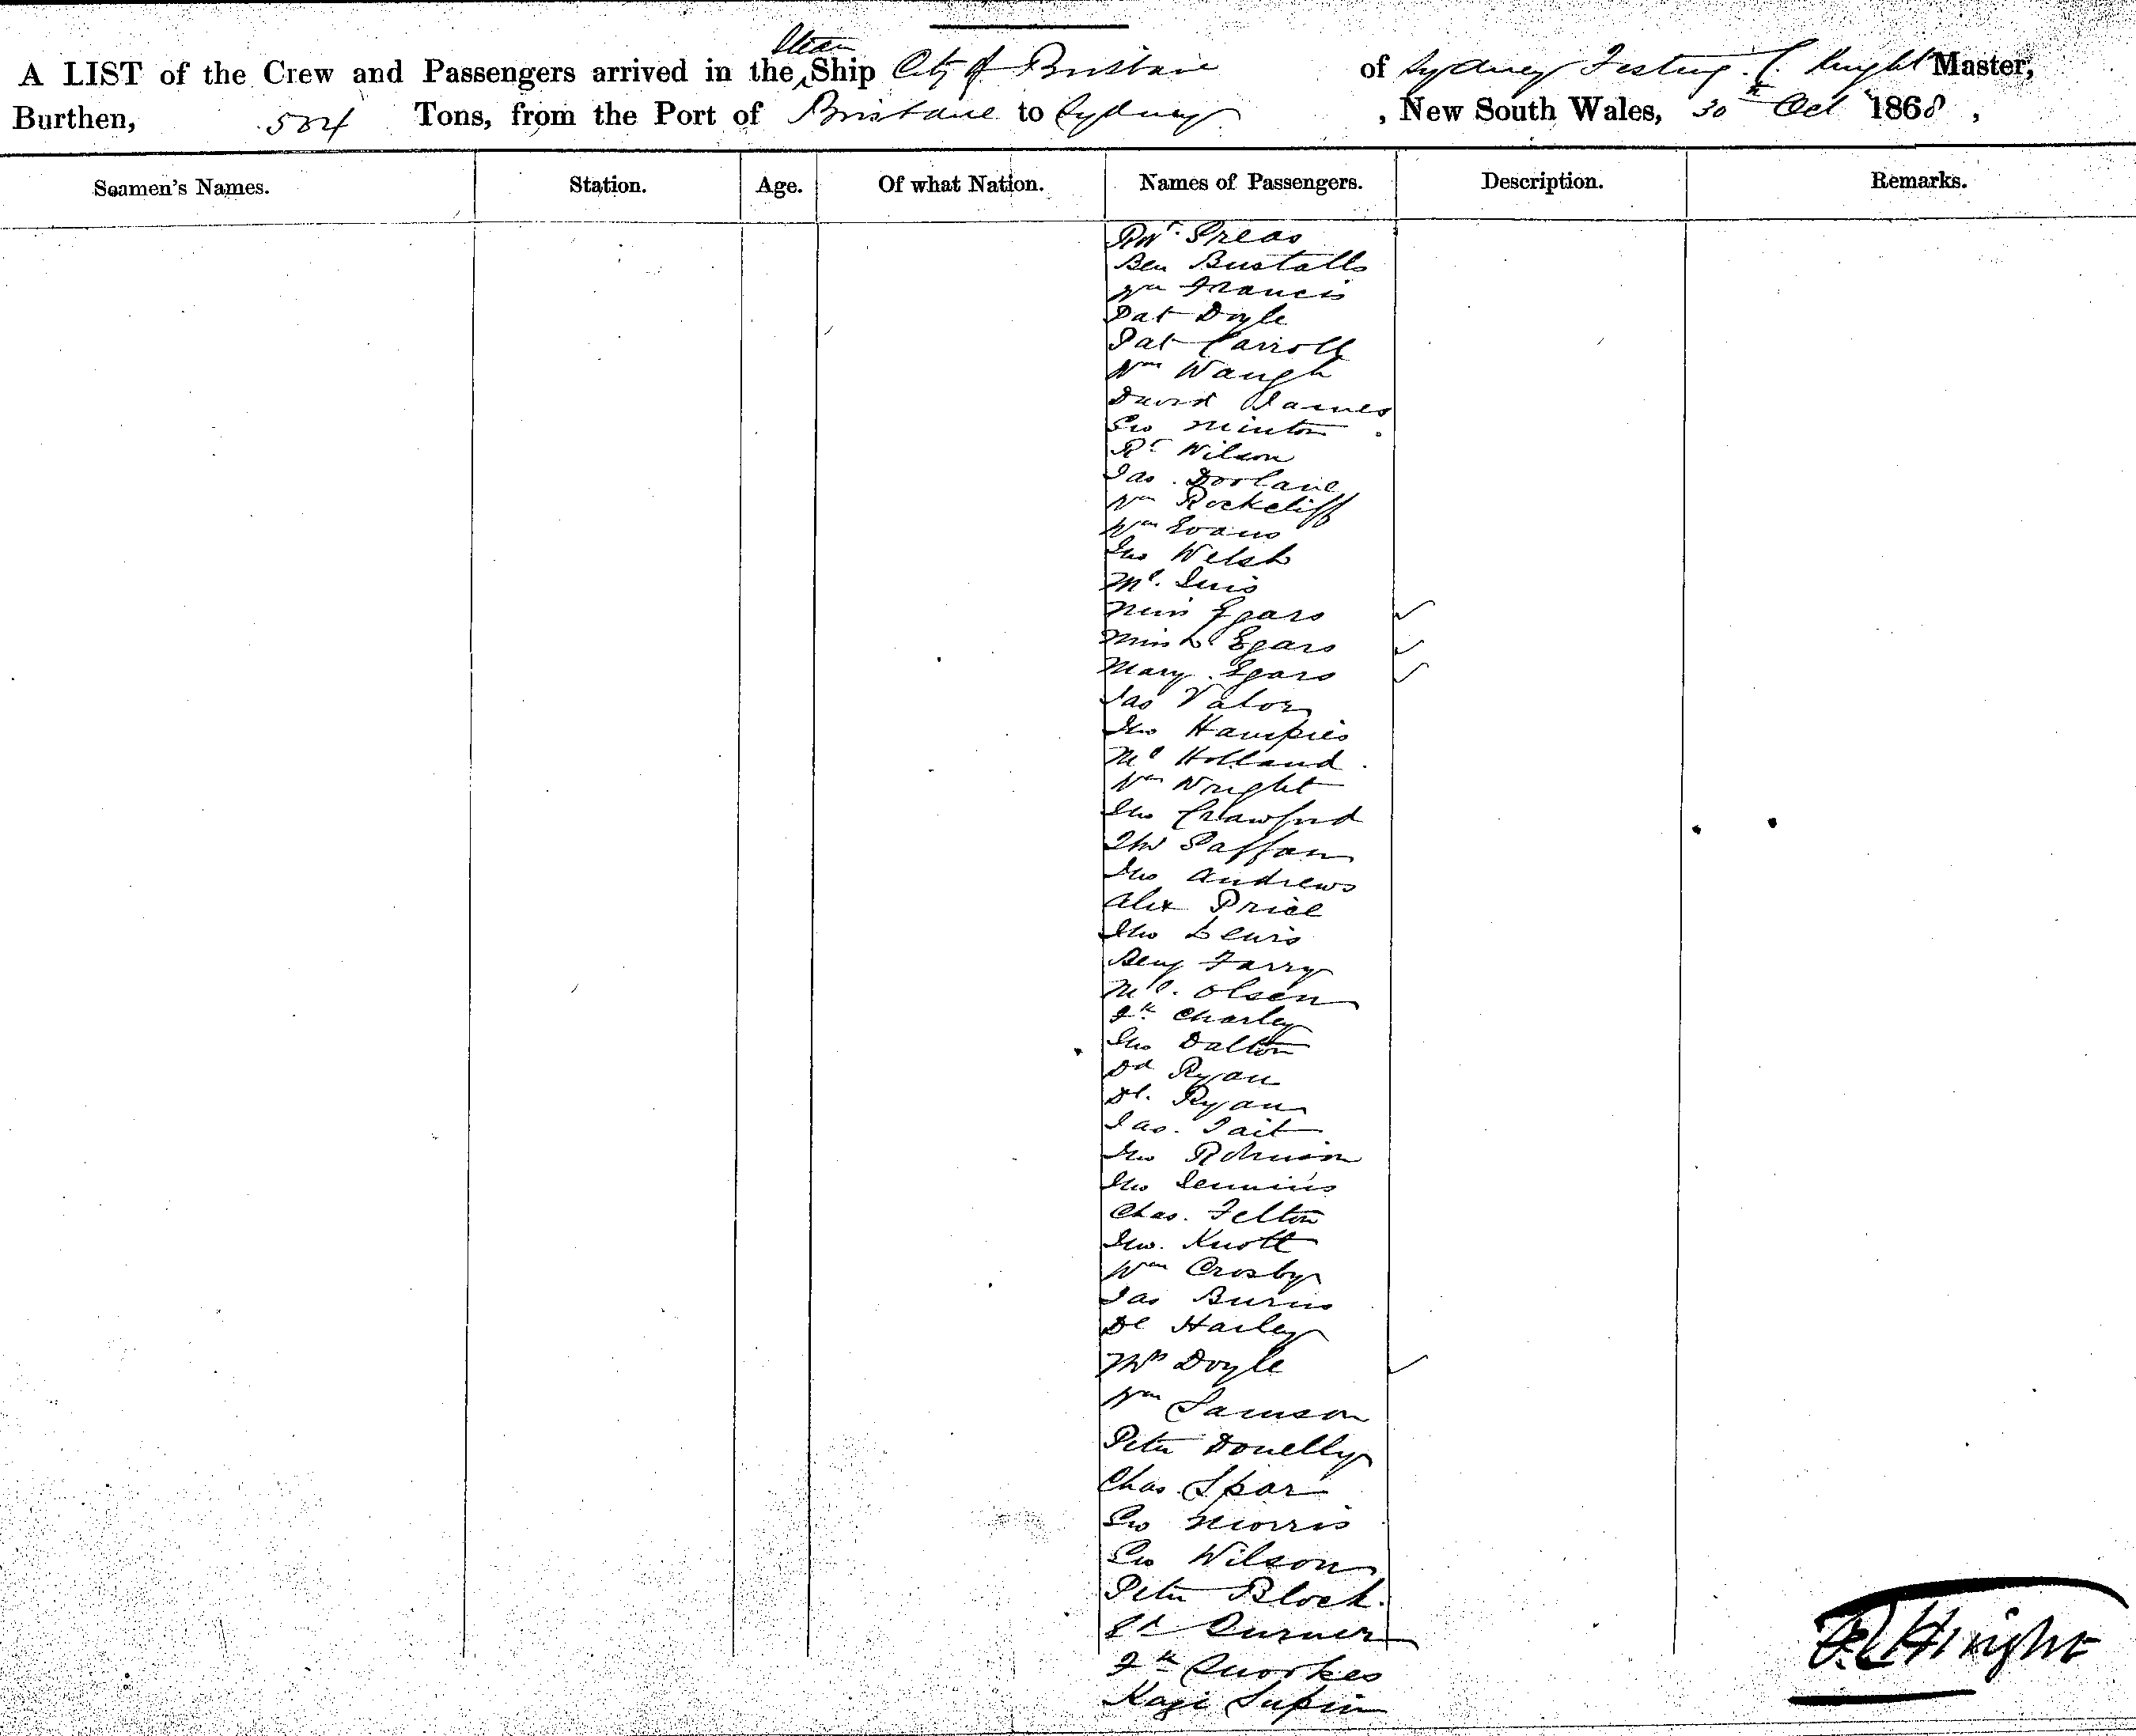 A LIST of the Crew and Passengers arrived in the Steam Ship City of Brisbane of Sydney Knight Master,
Burthen, 504 Tons, from the Port of Brisbane to Sydney, New South Wales, 30th Oct 1868,
Seamen's Names. Station. Age. Of what Nation. Names of Passengers. Description. Remarks.
Ben Bustalls
Wm Francis
Pat Doyle
Pat Carroll
Wm Waugh
David James
Geo Minton
Rt Wilson
Jas.
Wm Rockcliff
Wm Evans
Jno Welsh
Ml.
Miss Egars
Miss L Egars
Mary Egars
Jas
Jno Hampies
Ml Holland
Wm Wright
Jno Crawford
Jno Andrews
Alex Price
Jno Lewis
Benj Farry
Ml. Olsen
Fk Charley
Jno Dalton
Dd Ryan
Dl. Ryan
Jas. Tait
Jno Robinson
Jno Jennins
Chas. Felton
Jno. Knott
Wm Crosby
Jas Burns
Dl Harley
Mrs Doyle
Wm Samson
Peter Donelly
Chas. Spar
Geo Morris
Geo Wilson
Peter Block.
Turner
Fk
Knight